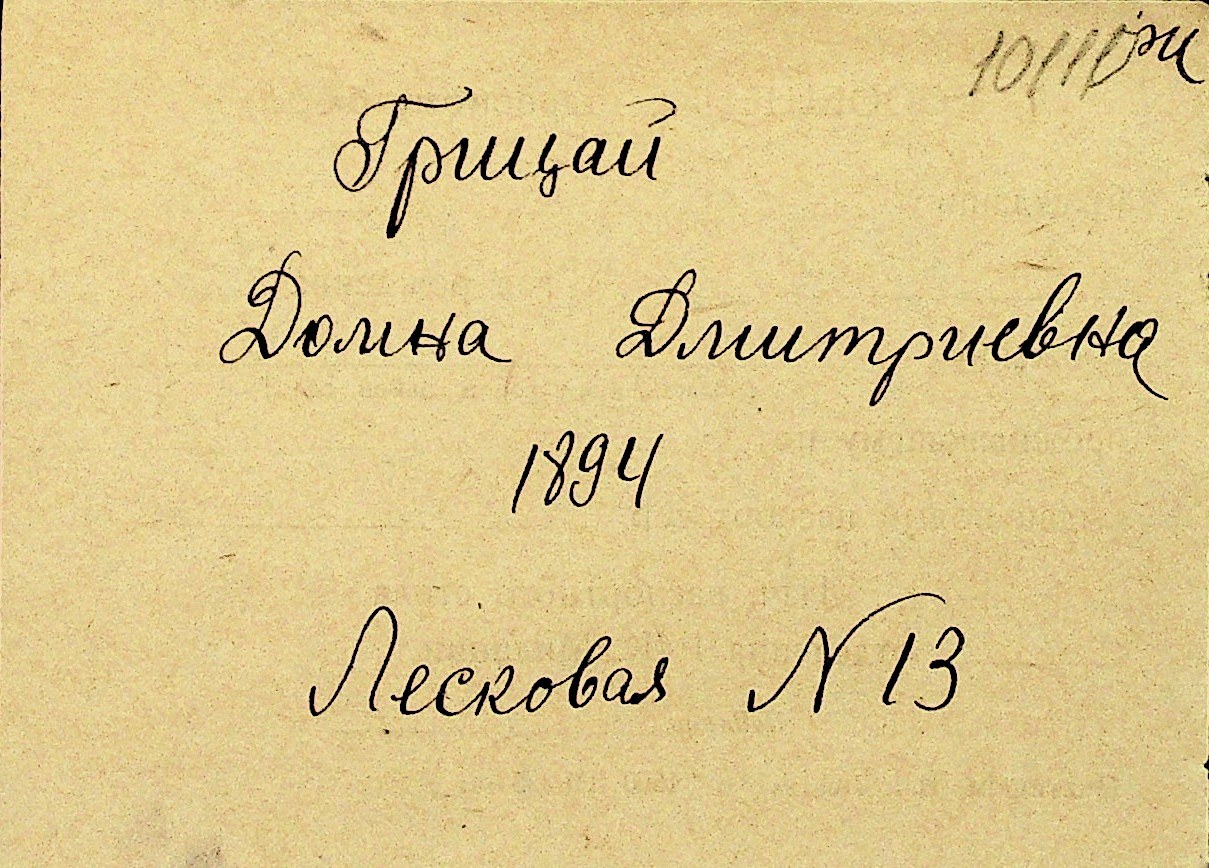 Грицай
Домна Дмитриевна
1894
Лесковая N 13